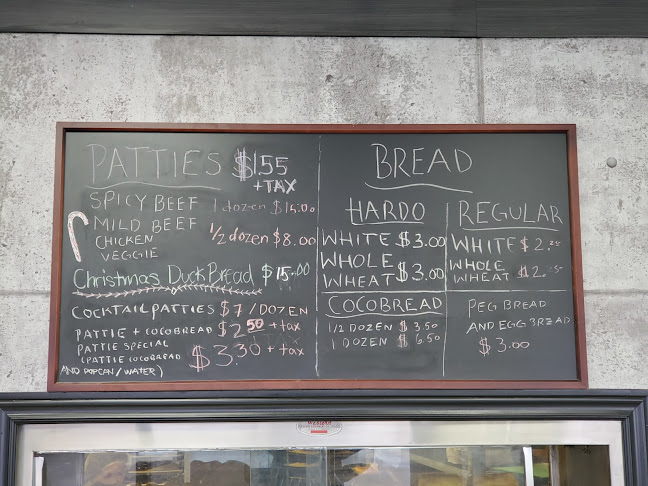 PATTIES $1.55
+ TAX
SPICY BEEF 1 dozen $15.00
MILD BEEF
CHICKEN 1/2 dozen $8.00
VEGGIE
Christmas Duck Bread $15.00
COCKTAIL PATTIES $7/DOZEN
PATTIE + COCOBREAD $2.50 + tax
PATTIE SPECIAL
(PATTIE COCOBREAD $3.30 + tax
AND POPCAN/WATER)
BREAD
HARDO
WHITE $3.00
WHOLE
WHEAT $3.00
REGULAR
WHITE $2.25
WHOLE
WHEAT $2.25
COCOBREAD
1/2 DOZEN $3.50
1 DOZEN $6.50
PEG BREAD
AND EGG BREAD
$3.00